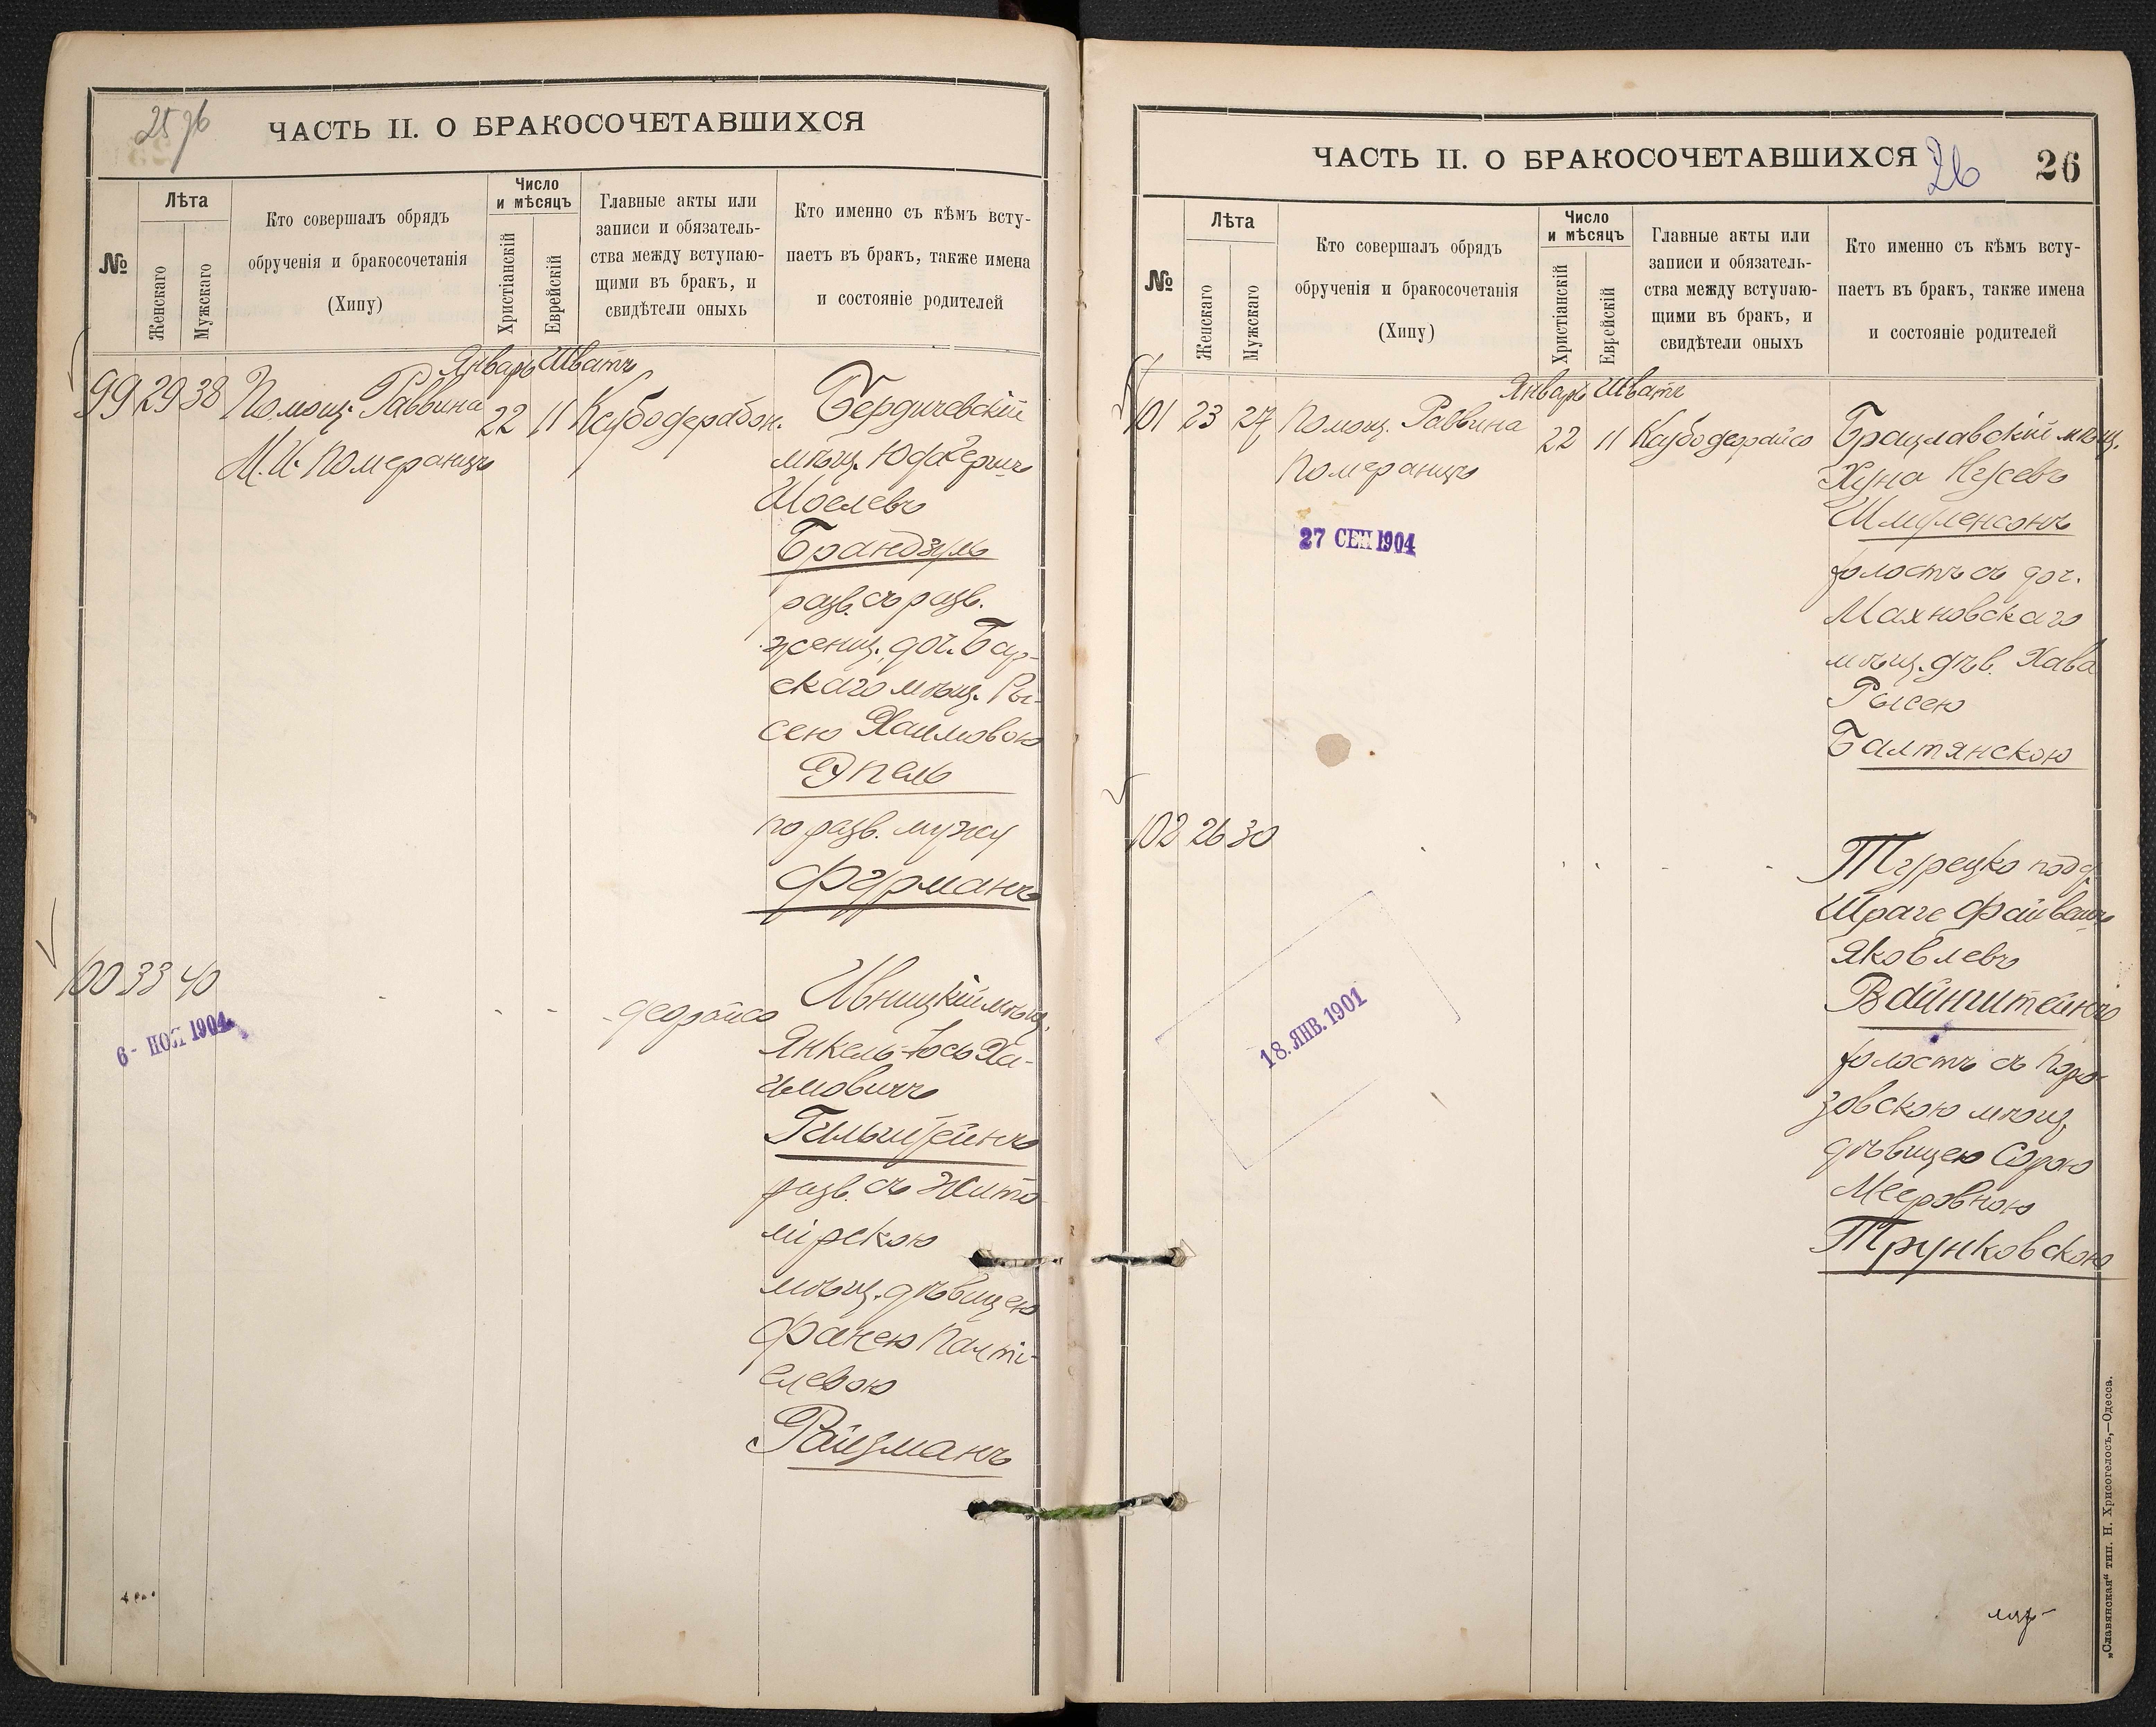 25 об
ЧАСТЬ II. О БРАКОСОЧЕТАВШИХСЯ
№
Лѣта
Женскаго
Мужскаго
Кто совершалъ обрядъ
обрученія и бракосочетанія
(Хипу)
Число
и мѣсяцъ
Христіанскій
Еврейскій
Главные акты или
записи и обязатель-
ства между вступаю-
щими въ бракъ, и
свидѣтели оныхъ
Кто именно съ кѣмъ всту-
паетъ въ бракъ, также имена
и состояніе родителей
Январь Шватъ
99 29 38 Помощ. Раввина 22 11
М. И. Померанцъ
Бердичевскій
мѣщ. Юда Гершъ
Иоелевъ
Брандзуль
разв. съ разв.
женщ. доч. Бар-
скаго мѣщ. Ры-
сею Хаимовою
Эпель
по разв. мужу
Фурманъ
100 33 40
6 - НОЯ 1904
Ивницкій мѣщ.
Янкель-Іось Ха-
имовичъ
Гольштейнъ
разв. съ Жито-
мірскою
мѣщ. дѣвицею
Фанею Палті-
елевою
Райзманъ
ЧАСТЬ II. О БРАКОСОЧЕТАВШИХСЯ
26
26
№
Лѣта
Женскаго
Мужскаго
Кто совершалъ обрядъ
обрученія и бракосочетанія
(Хипу)
Число
и мѣсяцъ
Христіанскій
Еврейскій
Главные акты или
записи и обязатель-
ства между вступаю-
щими въ бракъ, и
свидѣтели оныхъ
Кто именно съ кѣмъ всту-
паетъ въ бракъ, также имена
и состояніе родителей
Январь Шватъ
101 23 27 Помощ. Раввина 22 11
Померанцъ
27 СЕН 1904
Брацлавскій мѣщ.
Хуна Нусевъ
Шмуленсонъ
холостъ съ доч.
Махновскаго
мѣщ. дѣв. Хава
Рысею
Балтянскою
102 26 30
18. ЯНВ. 1901
Турецко подд.
Шраге Файвишъ
Яковлевъ
Вайнштейнъ
холостъ съ Поро-
зовскою мѣщ.
дѣвицею Сорою
Мееровною
Трунковскою
„Славянская“ тип. Н. Хрисогелосъ,—Одесса.